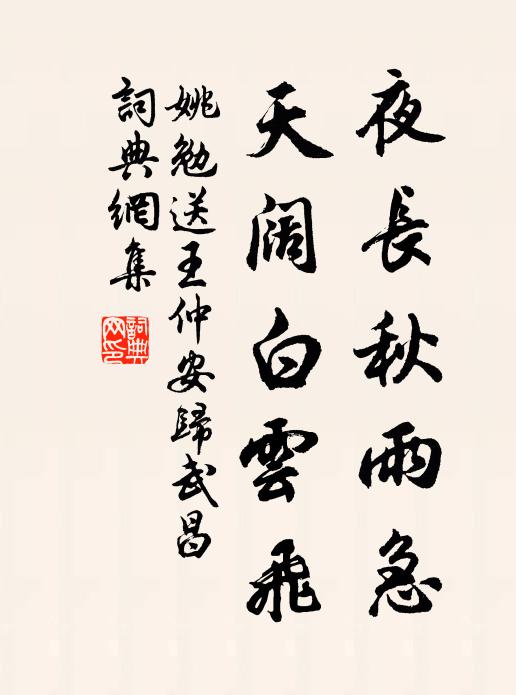 夜長秋雨急
天阔白雲飛
姚勉送王仲安歸武昌
詞典網集
詞典网印